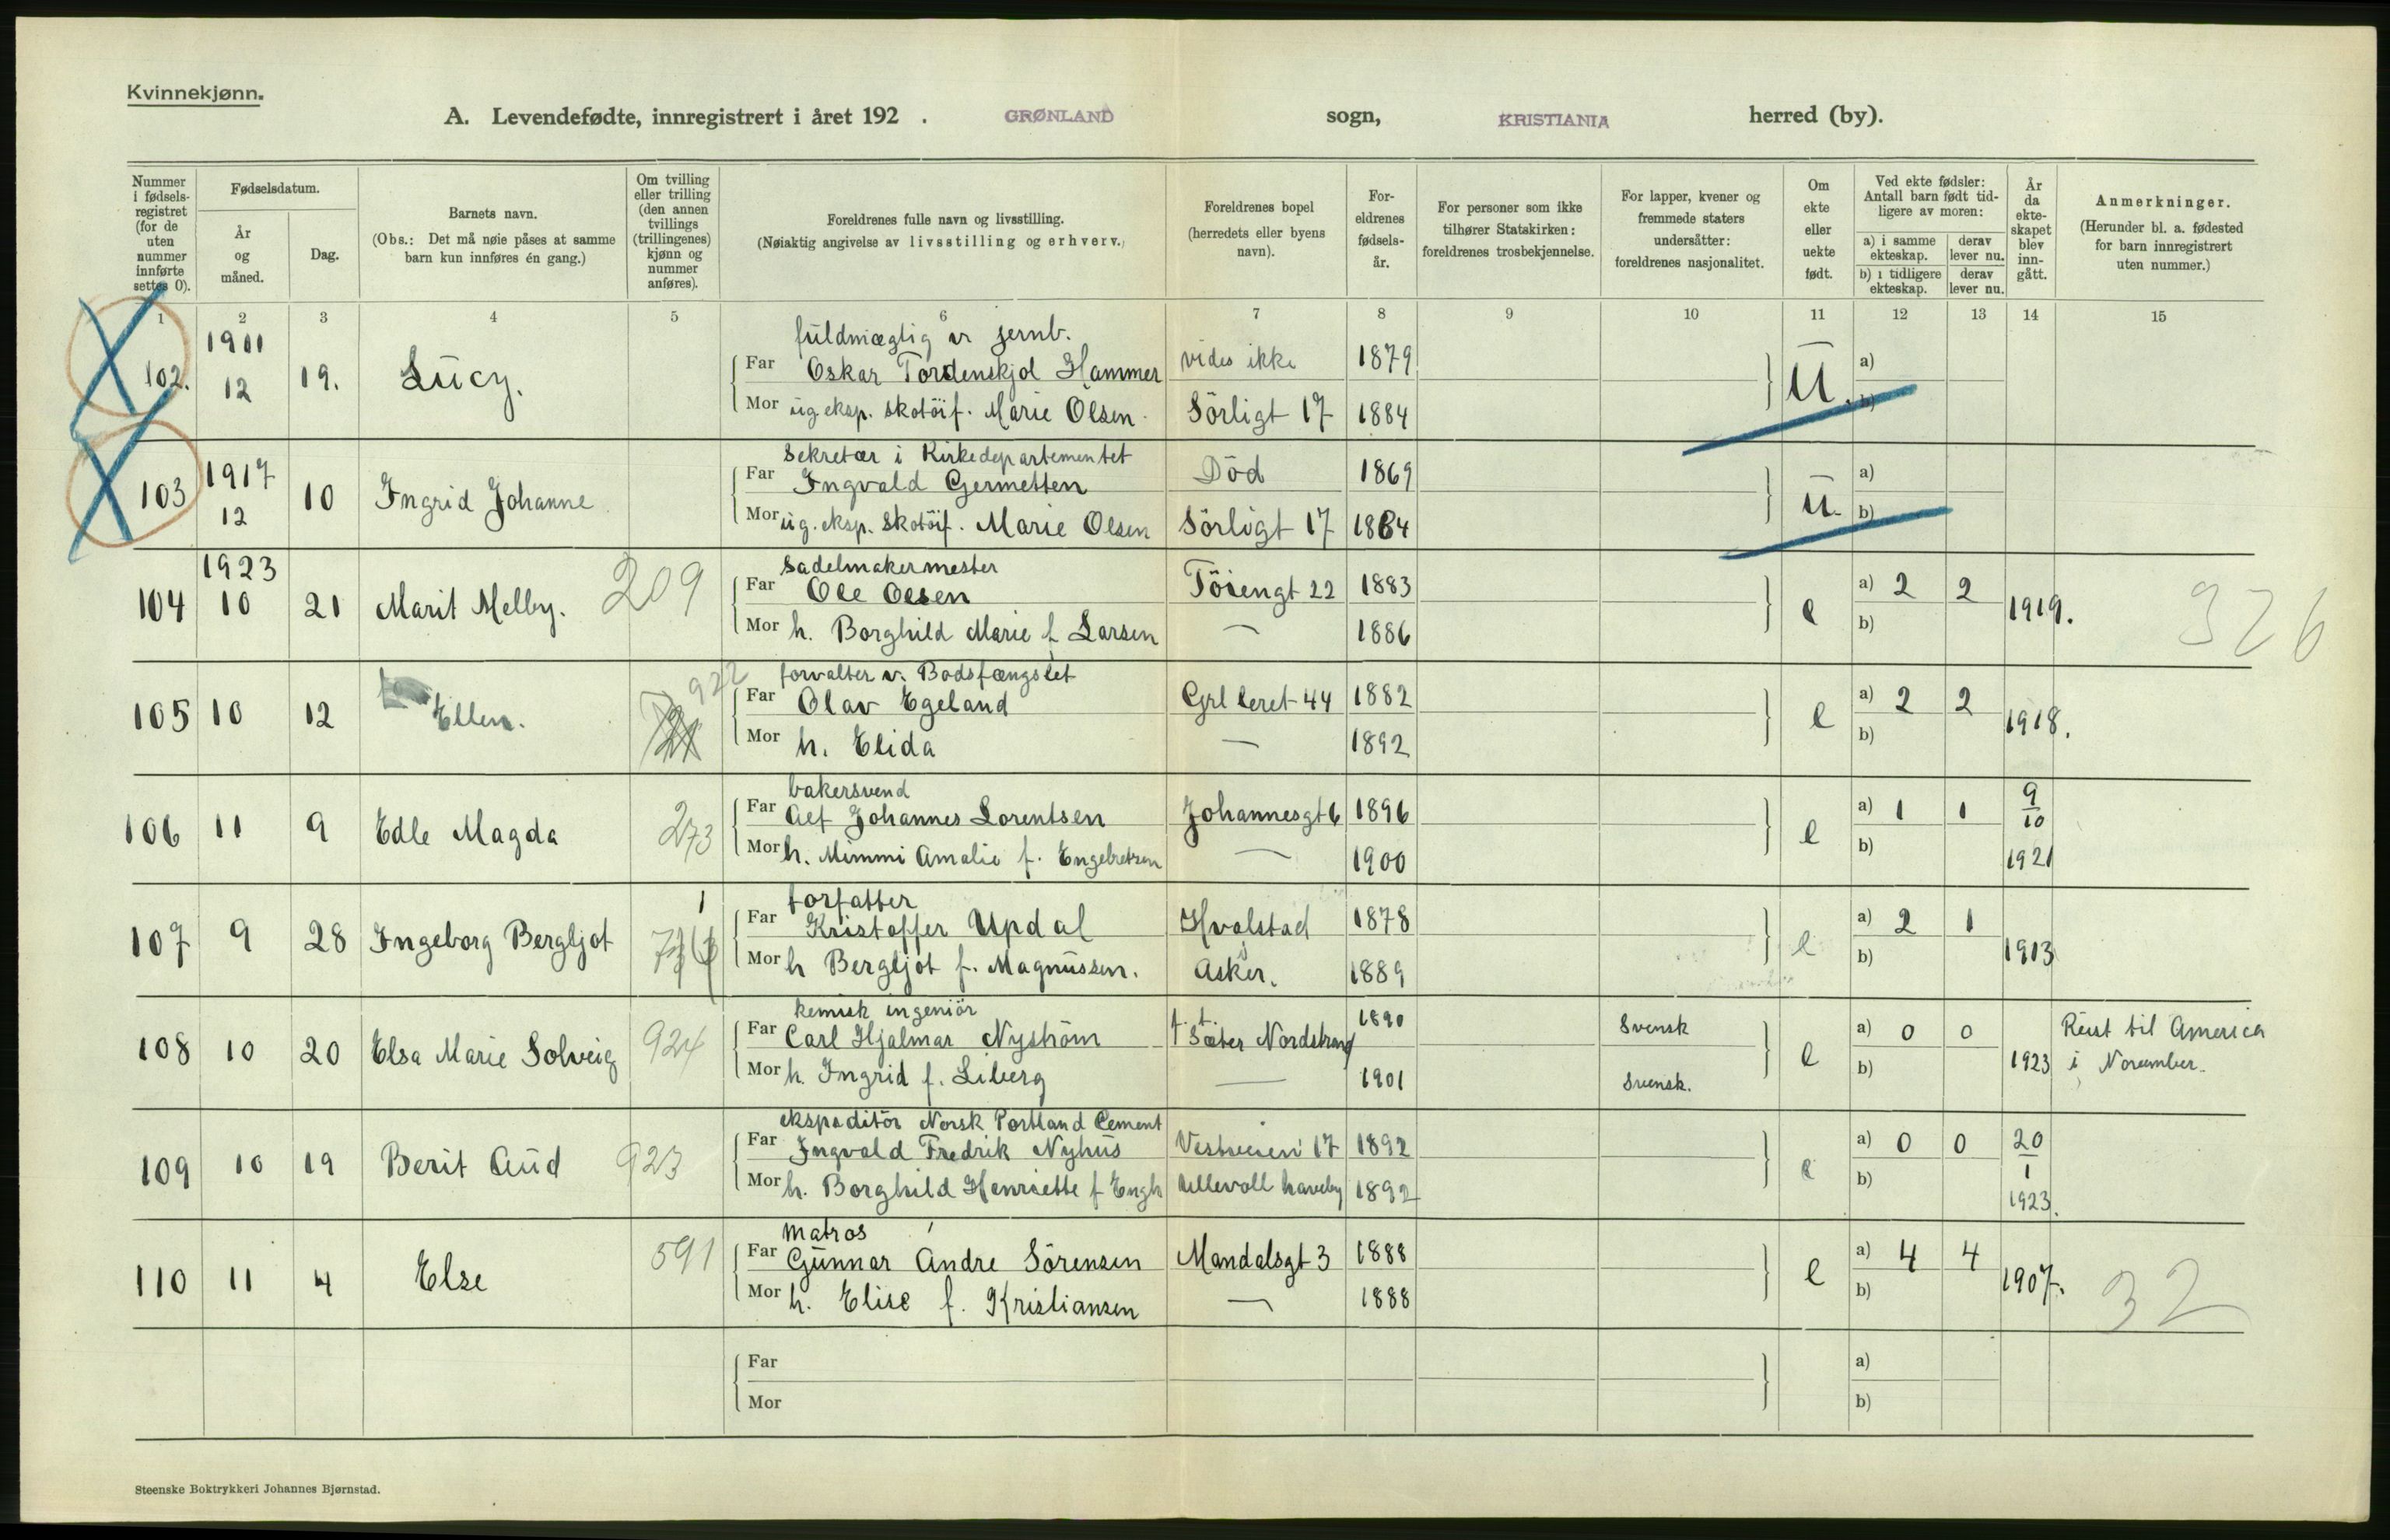 Kvinnekjønn.
A. Levendefødte, innregistrert i året 192 . GRØNLAND sogn, KRISTIANIA herred (by).
Nummer i fødsels-registret (for de uten nummer innførte settes 0).
Fødselsdatum.
År og måned.
Dag.
Barnets navn.
(Obs.: Det må nøie påses at samme barn kun innføres én gang.)
Om tvilling eller trilling (den annen tvillings (trillingenes) kjønn og nummer anføres).
Foreldrenes fulle navn og livsstilling.
(Nøiaktig angivelse av livsstilling og erhverv.)
Foreldrenes bopel (herredets eller byens navn).
For-eldrenes fødsels-år.
For personer som ikke tilhører Statskirken: foreldrenes trosbekjennelse.
For lapper, kvener og fremmede staters undersåtter: foreldrenes nasjonalitet.
Om ekte eller uekte født.
Ved ekte fødsler: Antall barn født tid-ligere av moren:
a) i samme ekteskap. derav lever nu.
b) i tidligere ekteskap. derav lever nu.
År da ekte-skapet blev inn-gått.
Anmerkninger.
(Herunder bl. a. fødested for barn innregistrert uten nummer.)
1 2 3 4 5 6 7 8 9 10 11 12 13 14 15
1911 fuldmægtig v jernb.
102. 12 19. Lucy. Far Oskar Tordenskjol Hammer vides ikke 1879 U. a)
Mor ug. eksp. skotöif. Marie Olsen Sörligt 17 1884 b)
1917 Sekretær i Kirkedepartementet
103 12 10 Ingrid Johanne Far Ingvald Germetten Död 1869 u. a)
Mor ug. eksp. skotöif. Marie Olsen Sörligt 17 1884 b)
1923 Sadelmakermester
104 10 21 Marit Melby. 209 Far Ole Olsen Töiengt 22 1883 e a) 2 2 1919. 326
Mor h. Borghild Marie f. Larsen — 1886 b)
922 forvalter v. Bodsfængslet
105 10 12 Ellen. Far Olav Egeland Grl leret 44 1882 e a) 2 2 1918.
Mor h. Elida — 1892 b)
bakersvend
106 11 9 Edle Magda 273 Far Alf Johannes Lorentsen Johannesgt 6 1896 e a) 1 1 9/10 1921
Mor h. Mimmi Amalie f. Engebretsen — 1900 b)
1 forfatter
107 9 28 Ingeborg Bergljot Far Kristoffer Updal Hvalstad 1878 e a) 2 1 1913
Mor h Bergljot f. Magnussen. Asker. 1889 b)
kemisk ingeniör
108 10 20 Elsa Marie Solveig 924 Far Carl Hjalmar Nyström t. t. Sæter Nordstrand 1890 Svensk e a) 0 0 1923 Reist til America
Mor h. Ingrid f. Liberg — 1901 Svensk. b) i November.
ekspeditör Norsk Portland Cement
109 10 19 Berit Aud 923 Far Ingvald Fredrik Nyhus Vestveien 17 1892 e a) 0 0 20/1 1923.
Mor h. Borghild Henriette f Engh Ullevoll haveby 1892 b)
Matros
110 11 4 Else 591 Far Gunnar Andre Sörensen Mandalsgt 3 1888 e a) 4 4 1907. 32
Mor h. Elise f. Kristiansen — 1888 b)
Far a)
Mor b)
Steenske Boktrykkeri Johannes Bjørnstad.